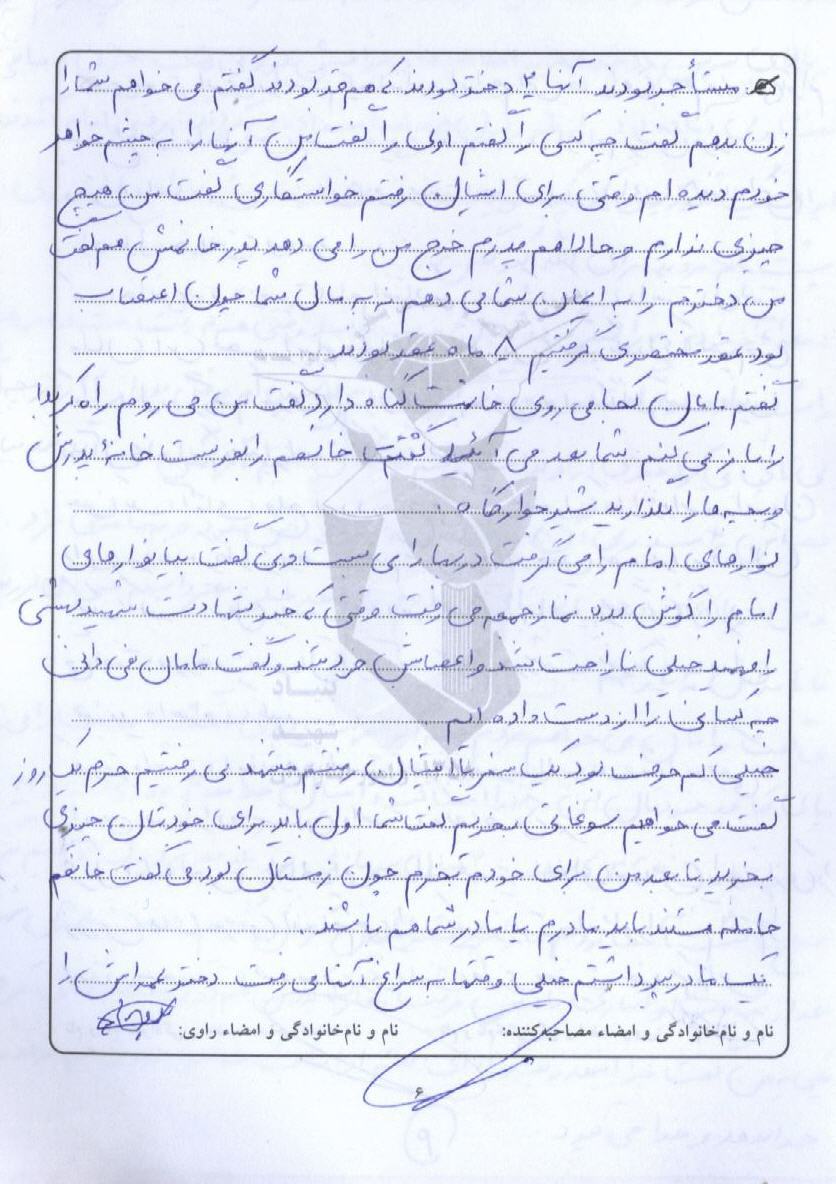 مستأجر بودند آنها ۲ دختر بودند که هم قد بودند گفتم می خواهم شما را
زن بدهم گفت چه کسی را گفتم اولی را گفت من آنها را به چشم خواهر
خودم دیده ام وقتی برای ایشان رفتم خواستگاری گفت من هیچ
چیزی ندارم و حالا هم پدرم خرج من را می دهد پدر خانمش هم گفت
من دخترم را به ایمان شما می دهم نه به مال شما چون اعتصاب
بود عقد مختصری گرفتیم ۸ ماه عقد بودند
گفتم مامان کجا می روی خانمت گناه دارد گفت من می روم راه کربلا
را باز می کنم شما بعد می آئید گفت خانمم را بفرست خانهٔ پدرش
و بچه ما را بگذارید شیرخوارگاه .
نوارهای امام را می گرفت در بهارا می بست و می گفت بیا نوارهای
امام را گوش بده نماز جمعه می رفت وقتی که خبر شهادت شهید بهشتی
را فهمید خیلی ناراحت شد و اعصابش خرد شد و گفت مامان نمی دانی
چه کسانی را از دست داده ایم
خیلی کم حرف بود یک سفر با ایشان رفتیم مشهد می رفتیم حرم یک روز
گفت می خواهیم سوغاتی بخریم گفت شما اول باید برای خودتان چیزی
بخرید تا بعد من برای خودم بخرم چون زمستان بود می گفت خانمم
حامله هستند باید مادرم یا مادر شما هم باشند .
یک مادر پیر داشتم خیلی وقتها به سراغ آنها می رفت دختر عمه اش را
نام و نام‌خانوادگی و امضاء مصاحبه‌کننده: نام و نام‌خانوادگی و امضاء راوی:
۶
۹